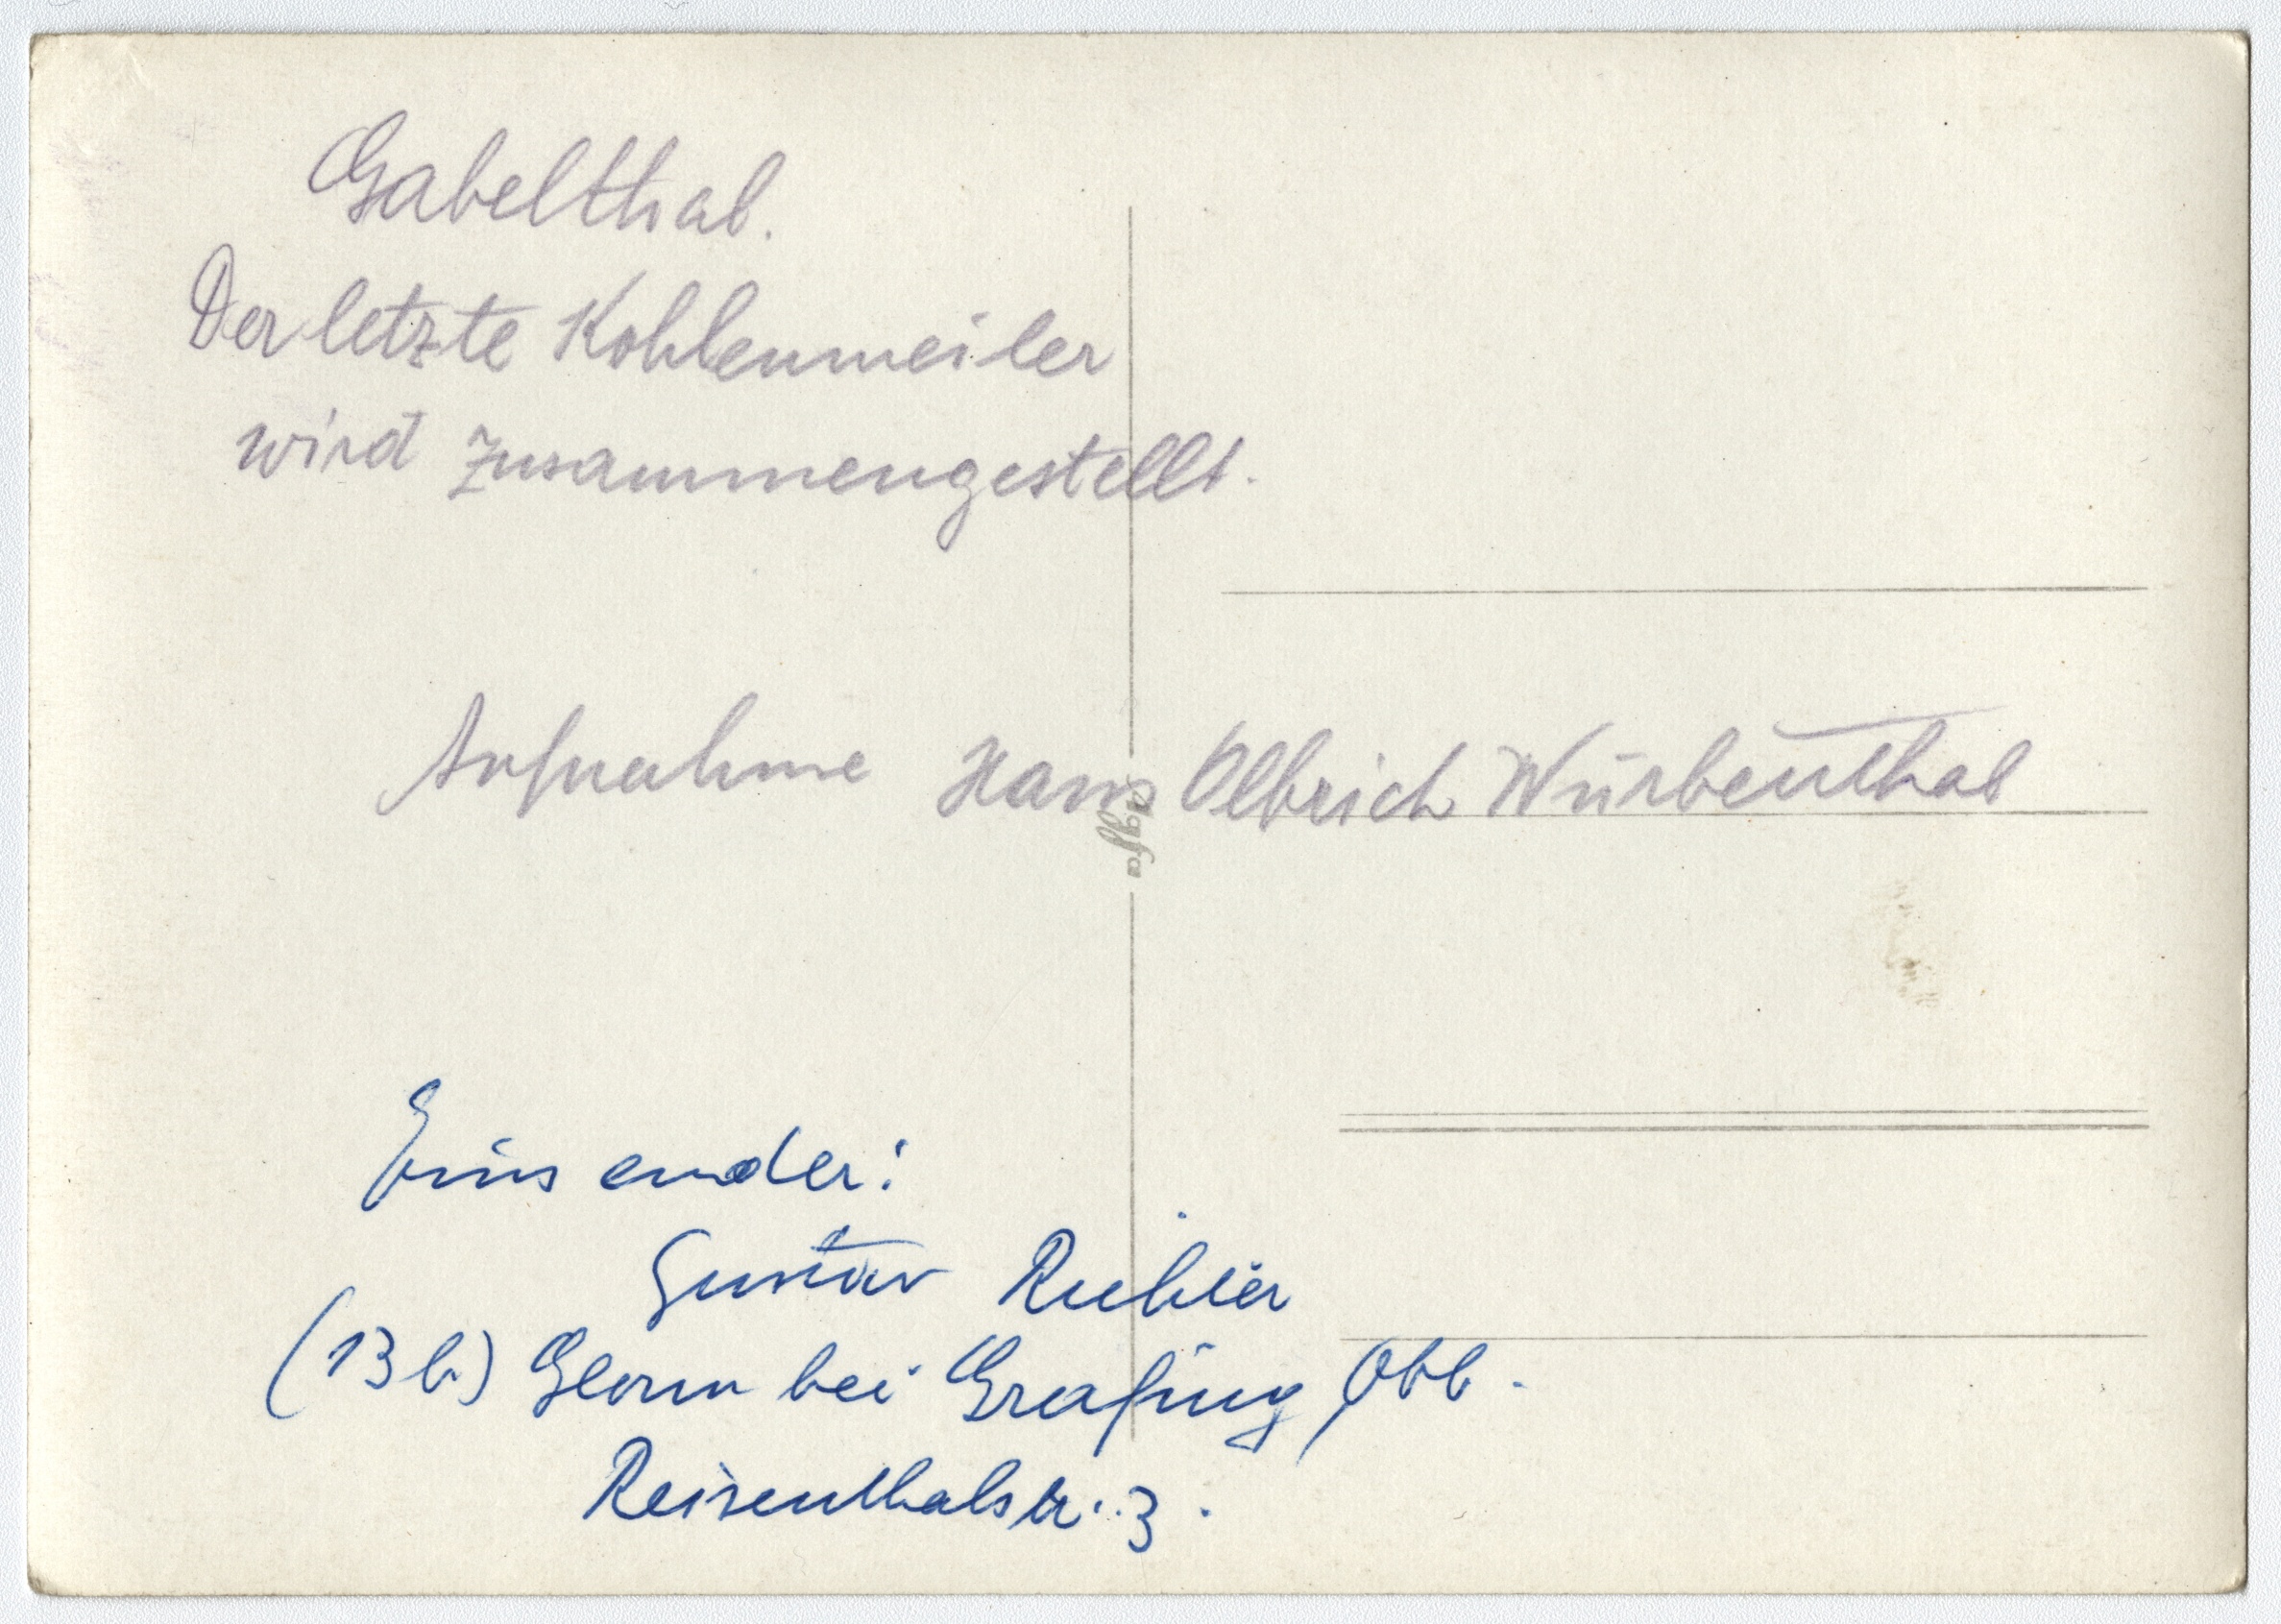 Gabelthal.
Der letzte Kohlenmeiler
wird zusammengestellt.
Aufnahme Hans Olbrich Würbenthal
Agfa
Einsender:
Gustav Richter
(13b) Glonn bei Grafing, Obb.
Reisenthalstr. 3.